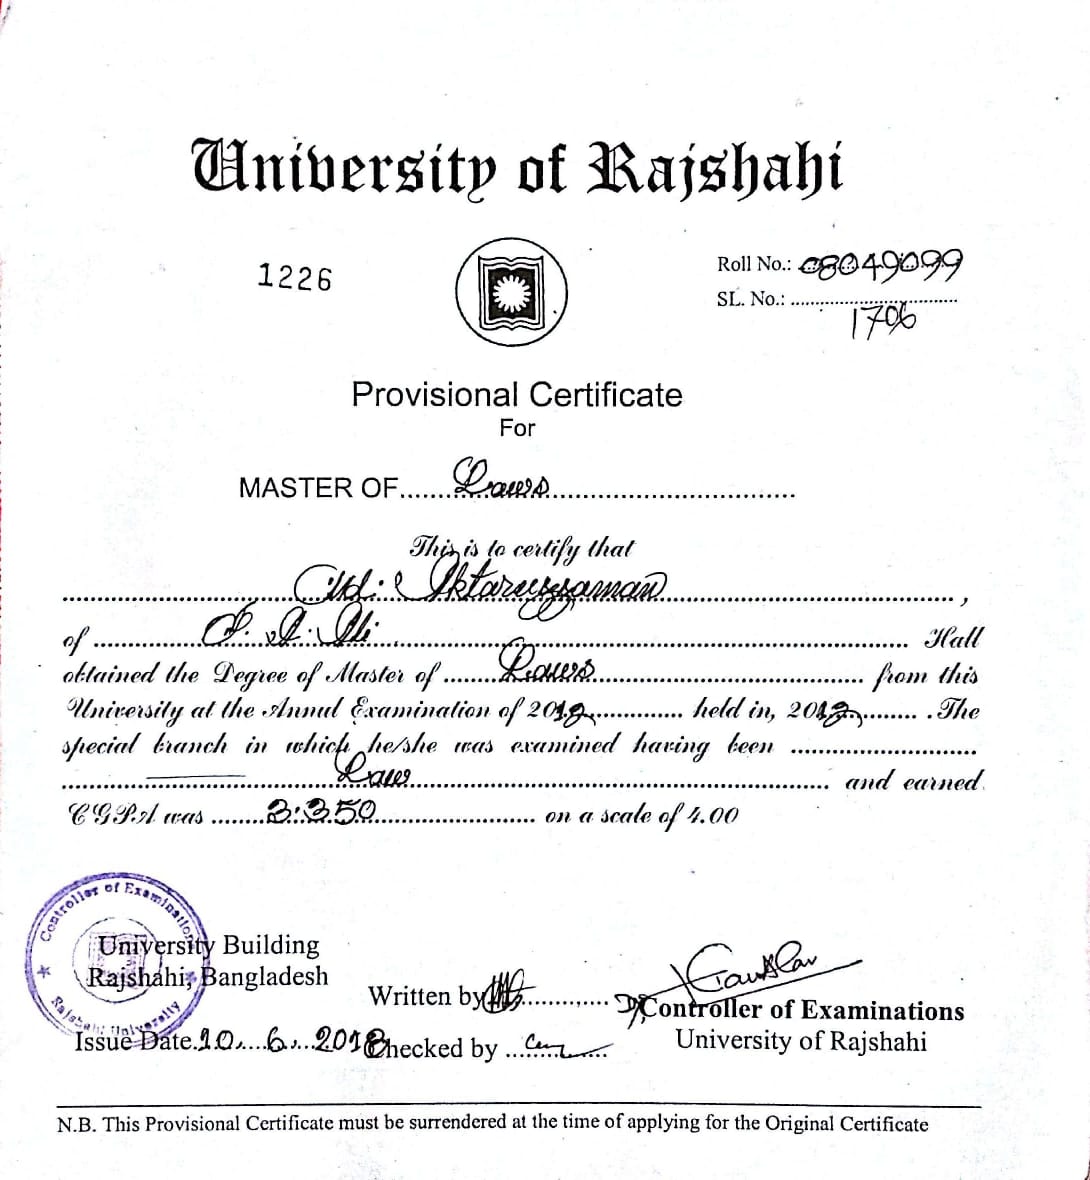 University of Rajshahi
1226
Roll No.: 08049099
SL. No.: ................................
1706
Provisional Certificate
For
MASTER OF.......Laws................................
This is to certify that
Md. Iktaruzzaman ,
of ................ Ali ................ Hall
obtained the Degree of Master of ........Laws................ from this
University at the Annul Examination of 2012............ held in, 201 ........ .The
special branch in which he/she was examined having been ........................
................Law................ and earned
CGPA was ........3.350................ on a scale of 4.00
Controller of Examination
Rajshahi University
University Building
Rajshahi, Bangladesh
Written by ............
Controller of Examinations
University of Rajshahi
Issue Date.10....6....2018
Checked by ............
N.B. This Provisional Certificate must be surrendered at the time of applying for the Original Certificate